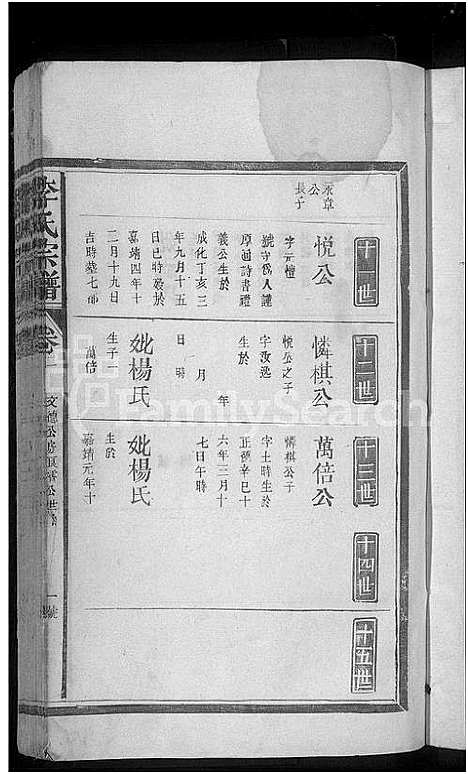 十一世
十二世
十三世
十四世
十五世
承章
公
長子
悅公
字元檀
號守愚人謹
厚通詩書禮
義公生於
成化丁亥三
年九月十五
日巳時歿於
嘉靖四年十
二月十九日
吉時墓七都
憐棋公
悅公之子
字汝逸
生於
年
月
日 時
妣楊氏
生子
萬倍
萬倍公
憐棋公子
字土時生於
正德辛巳十
六年三月十
七日午時
妣楊氏
生於
嘉靖元年十
李氏宗譜
卷十
FamilySearch